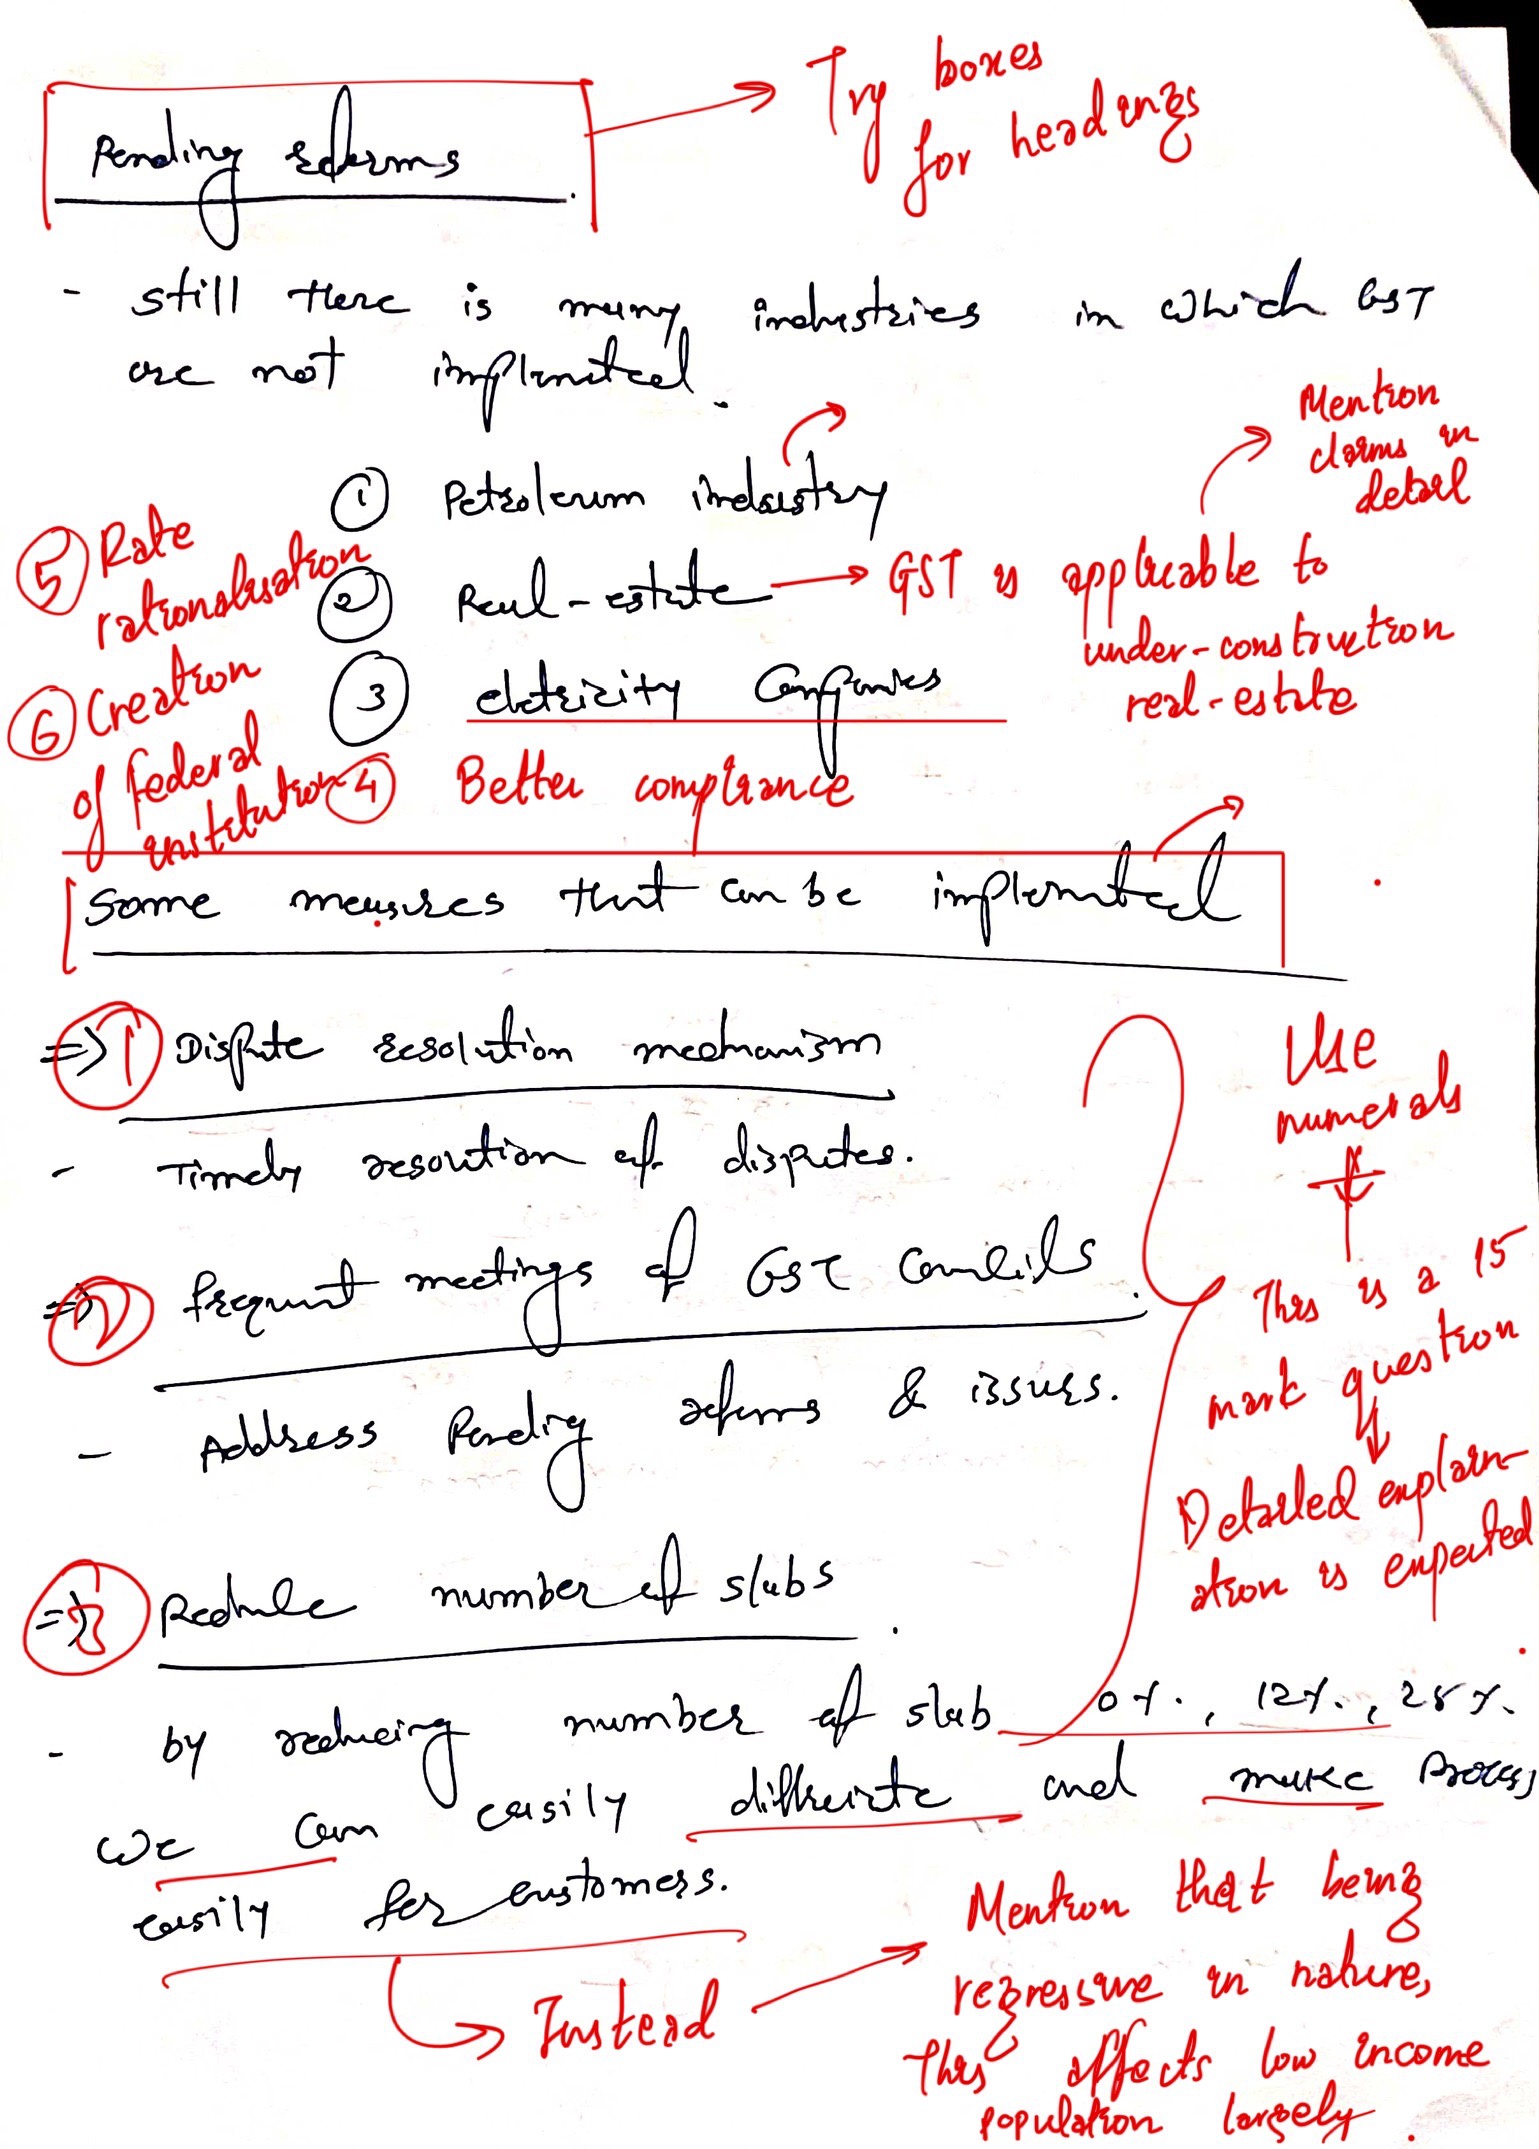 Try boxes
for headings
Pending reforms
- still there is many industries in which GST
are not implemited.
Mention
claims in
detail
① Petroleum industry
⑤ Rate
rationalisation
② Real-estate → GST is applicable to
under-construction
real-estate
③ eletricity Companies
⑥ Creation
of federal
institution
④ Better compliance
Some measures that can be implemented
=> 1 Dispute resolution mechanism
Use
numerals
- Timely resolution of disputes.
=> 2 frequent meetings of GST Councils.
This is a 15
mark question
- Address Pending reforms & issues.
Detailed explain-
ation is expected
=> 3 Reduce number of slabs.
- by reducing number of slab 0%., 12%., 28%.
we can easily and make process
easily for customers.
Instead → Mention that being
regressive in nature,
This affects low income
population largely.